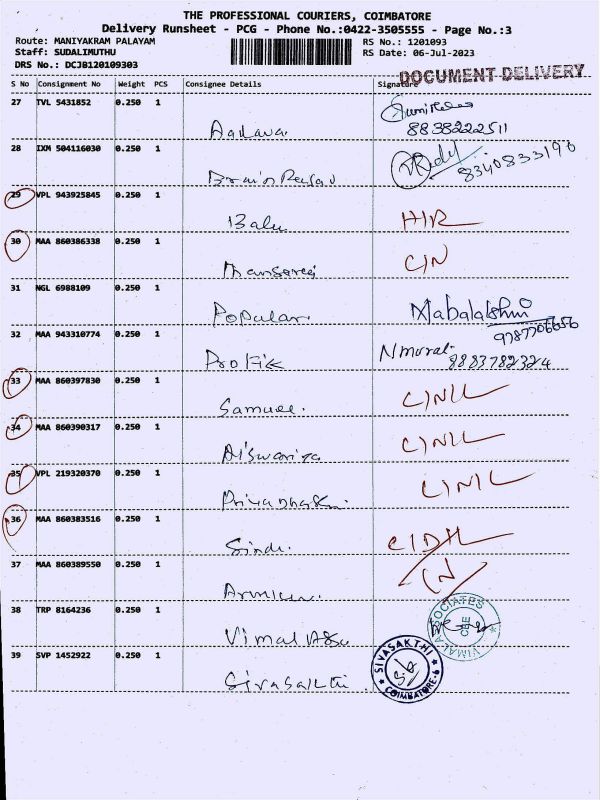 THE PROFESSIONAL COURIERS, COIMBATORE
Delivery Runsheet - PCG - Phone No.:0422-3505555 - Page No.:3
Route: MANIYAKRAM PALAYAM
Staff: SUDALIMUTHU
DRS No.: DCJB120109303
RS No.: 1201093
RS Date: 06-Jul-2023
DOCUMENT DELIVERY
S No Consignment No Weight PCS Consignee Details Signature
27 TVL 5431852 0.250 1
8838222511
28 IXM 504116030 0.250 1
8340833190
29 VPL 943925845 0.250 1
Balu
30 MAA 860386338 0.250 1
C/N
31 NGL 6988109 0.250 1
Popular Mabalakshmi
9787706656
32 MAA 943310774 0.250 1
Profik Nmurali
8883782324
33 MAA 860397830 0.250 1
Samuel C/N/L
34 MAA 860390317 0.250 1
Aiswariya C/N/L
35 VPL 219320370 0.250 1
C/N/L
36 MAA 860383516 0.250 1
37 MAA 860389550 0.250 1
C/N
38 TRP 8164236 0.250 1
Vimal Asso
VIMAL ASSOCIATES
CBE
39 SVP 1452922 0.250 1
Sivasakthi
SIVASAKTHI
COIMBATORE-6